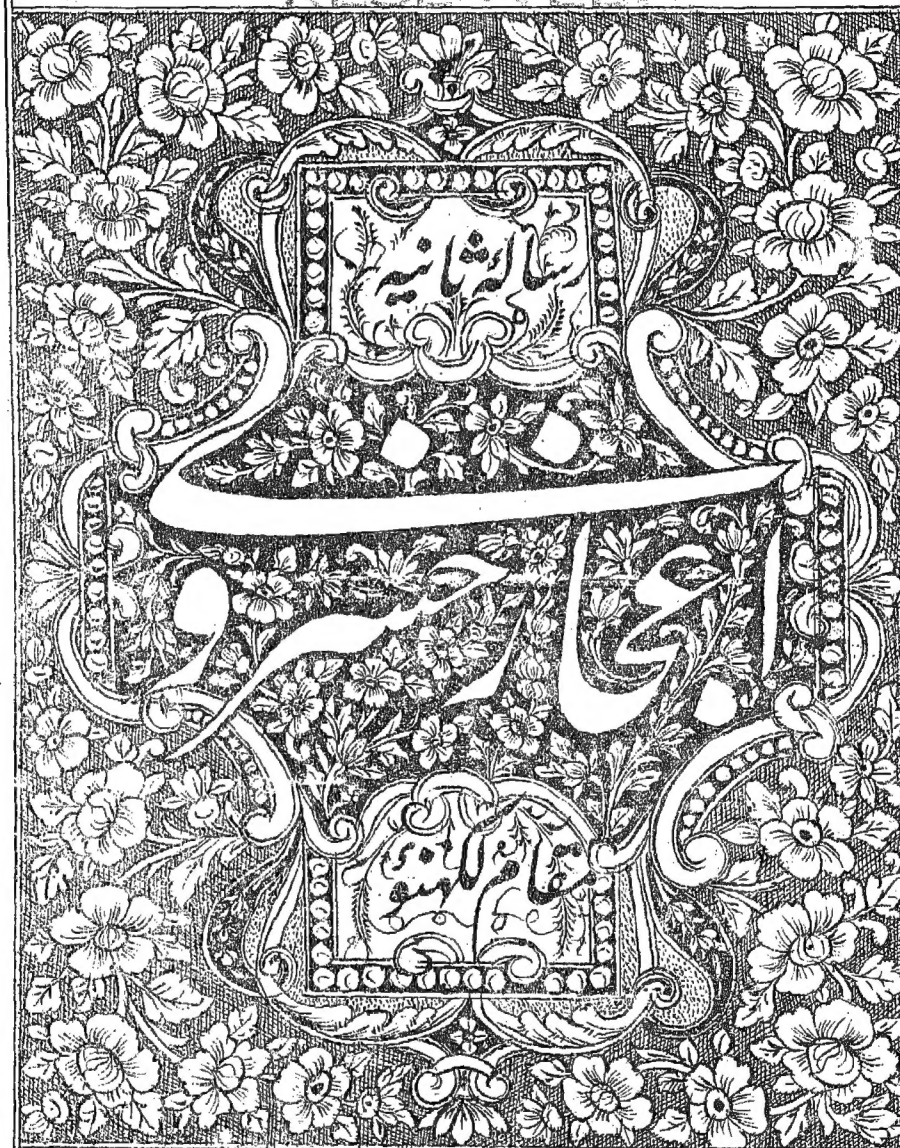 رسالهٔ ثانیه
اعجاز خسروی
بمقام لکهنؤ